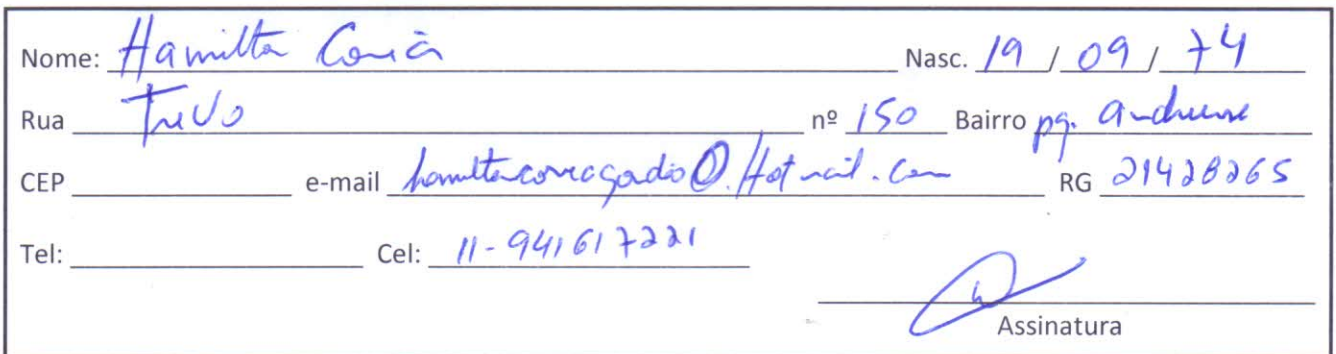 Nome: Hamilton Corrêa Nasc. 19 / 09 / 74
Rua Trevo nº 150 Bairro pq. andreense
CEP e-mail Hotmail.com RG 21428265
Tel: Cel: 11-941617221
Assinatura